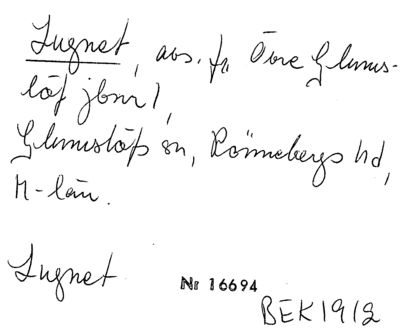 Lugnet, avs. fr. Övre Glums-
löf jbnr 1,
Glumslöfs sn, Rönnebergs hd,
M-län.
Lugnet
Nr 16694
BEK 1912